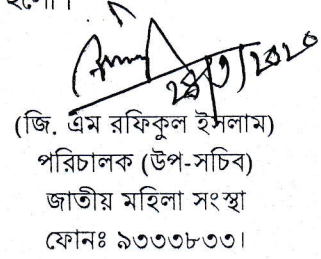 হলো।
২৪/৩/২০২০
(জি. এম রফিকুল ইসলাম)
পরিচালক (উপ-সচিব)
জাতীয় মহিলা সংস্থা
ফোনঃ ৯৩৩৩৮৩৩।